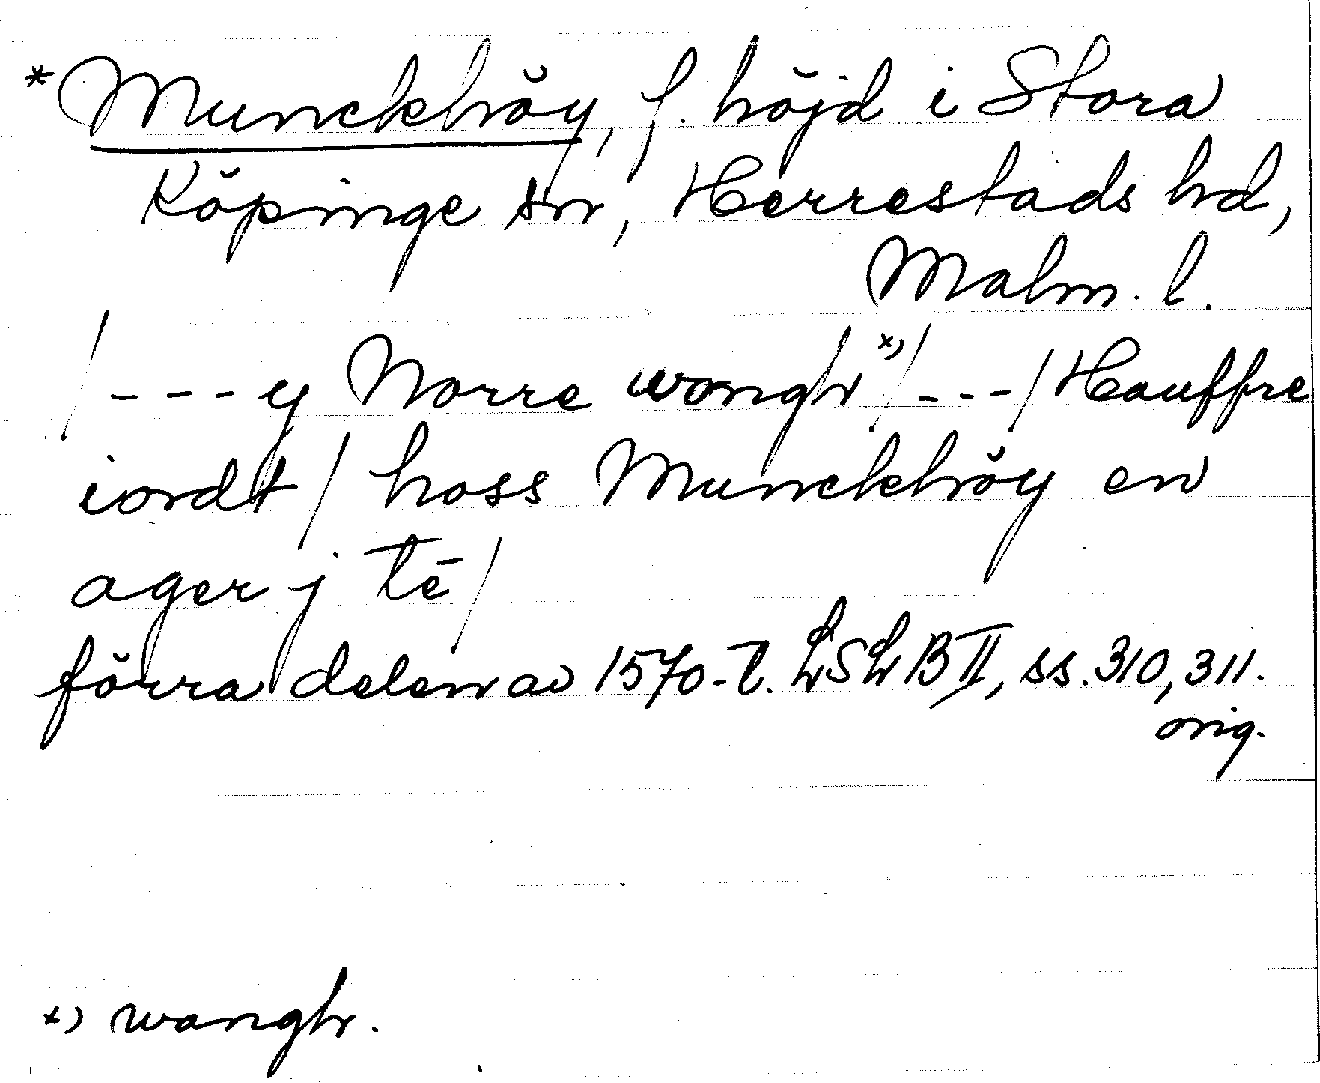 *Munckhöy, f. höjd i Stora
Köpinge sn, Herrestads hd,
Malm. l.
/---y Norre wongh *)/---/ Hauffre
iordt / hoss Munckhöy en
ager j té /
förra delen av 1570-t. LSLB II, ss. 310, 311.
orig.
*) wangh.